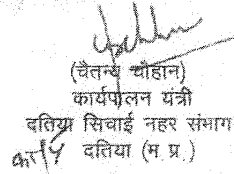 (चैतन्य चौहान)
कार्यपालन यंत्री
दतिया सिंचाई नहर संभाग
दतिया (म.प्र.)